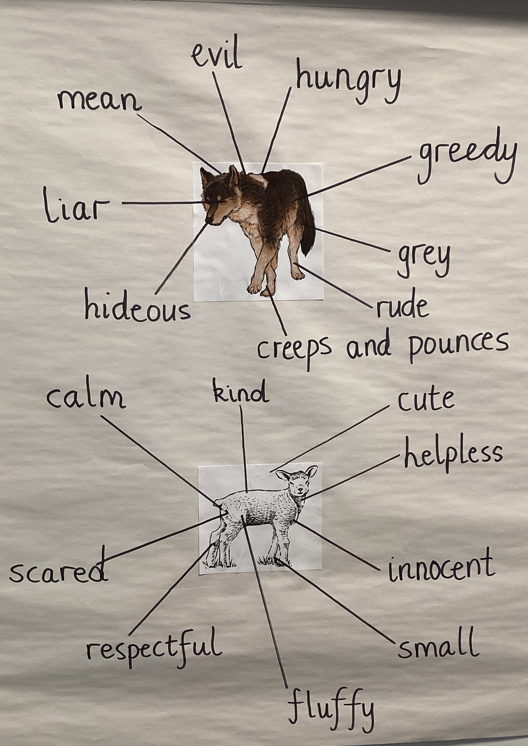 evil
hungry
mean
greedy
liar
grey
hideous
rude
creeps and pounces
calm
kind
cute
helpless
scared
innocent
respectful
small
fluffy